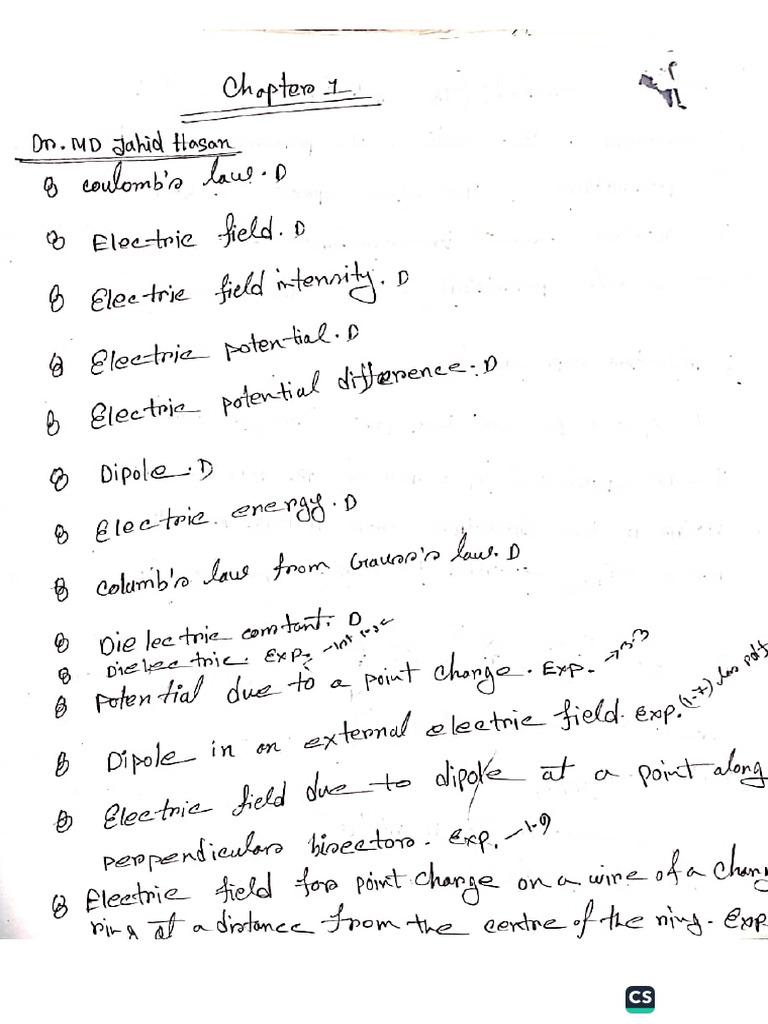 Chapters 1
Dr. MD Jahid Hasan
coulomb's law. D
Electric field. D
Electric field intensity. D
Electric potential. D
Electric potential difference. D
Dipole. D
Electric energy. D
Columb's law from Gauss's law. D
Dielectric constant. D
Dielectric. Exp.
Potential due to a point charge. Exp. → 3.3
Dipole in an external electric field. Exp. (1-7),
Electric field due to dipole at a point along
perpendiculars bisectors. Exp. - 1.9
Electric field for point charge on a wire of a charg
ring at a distance from the centre of the ring. Exp
CS